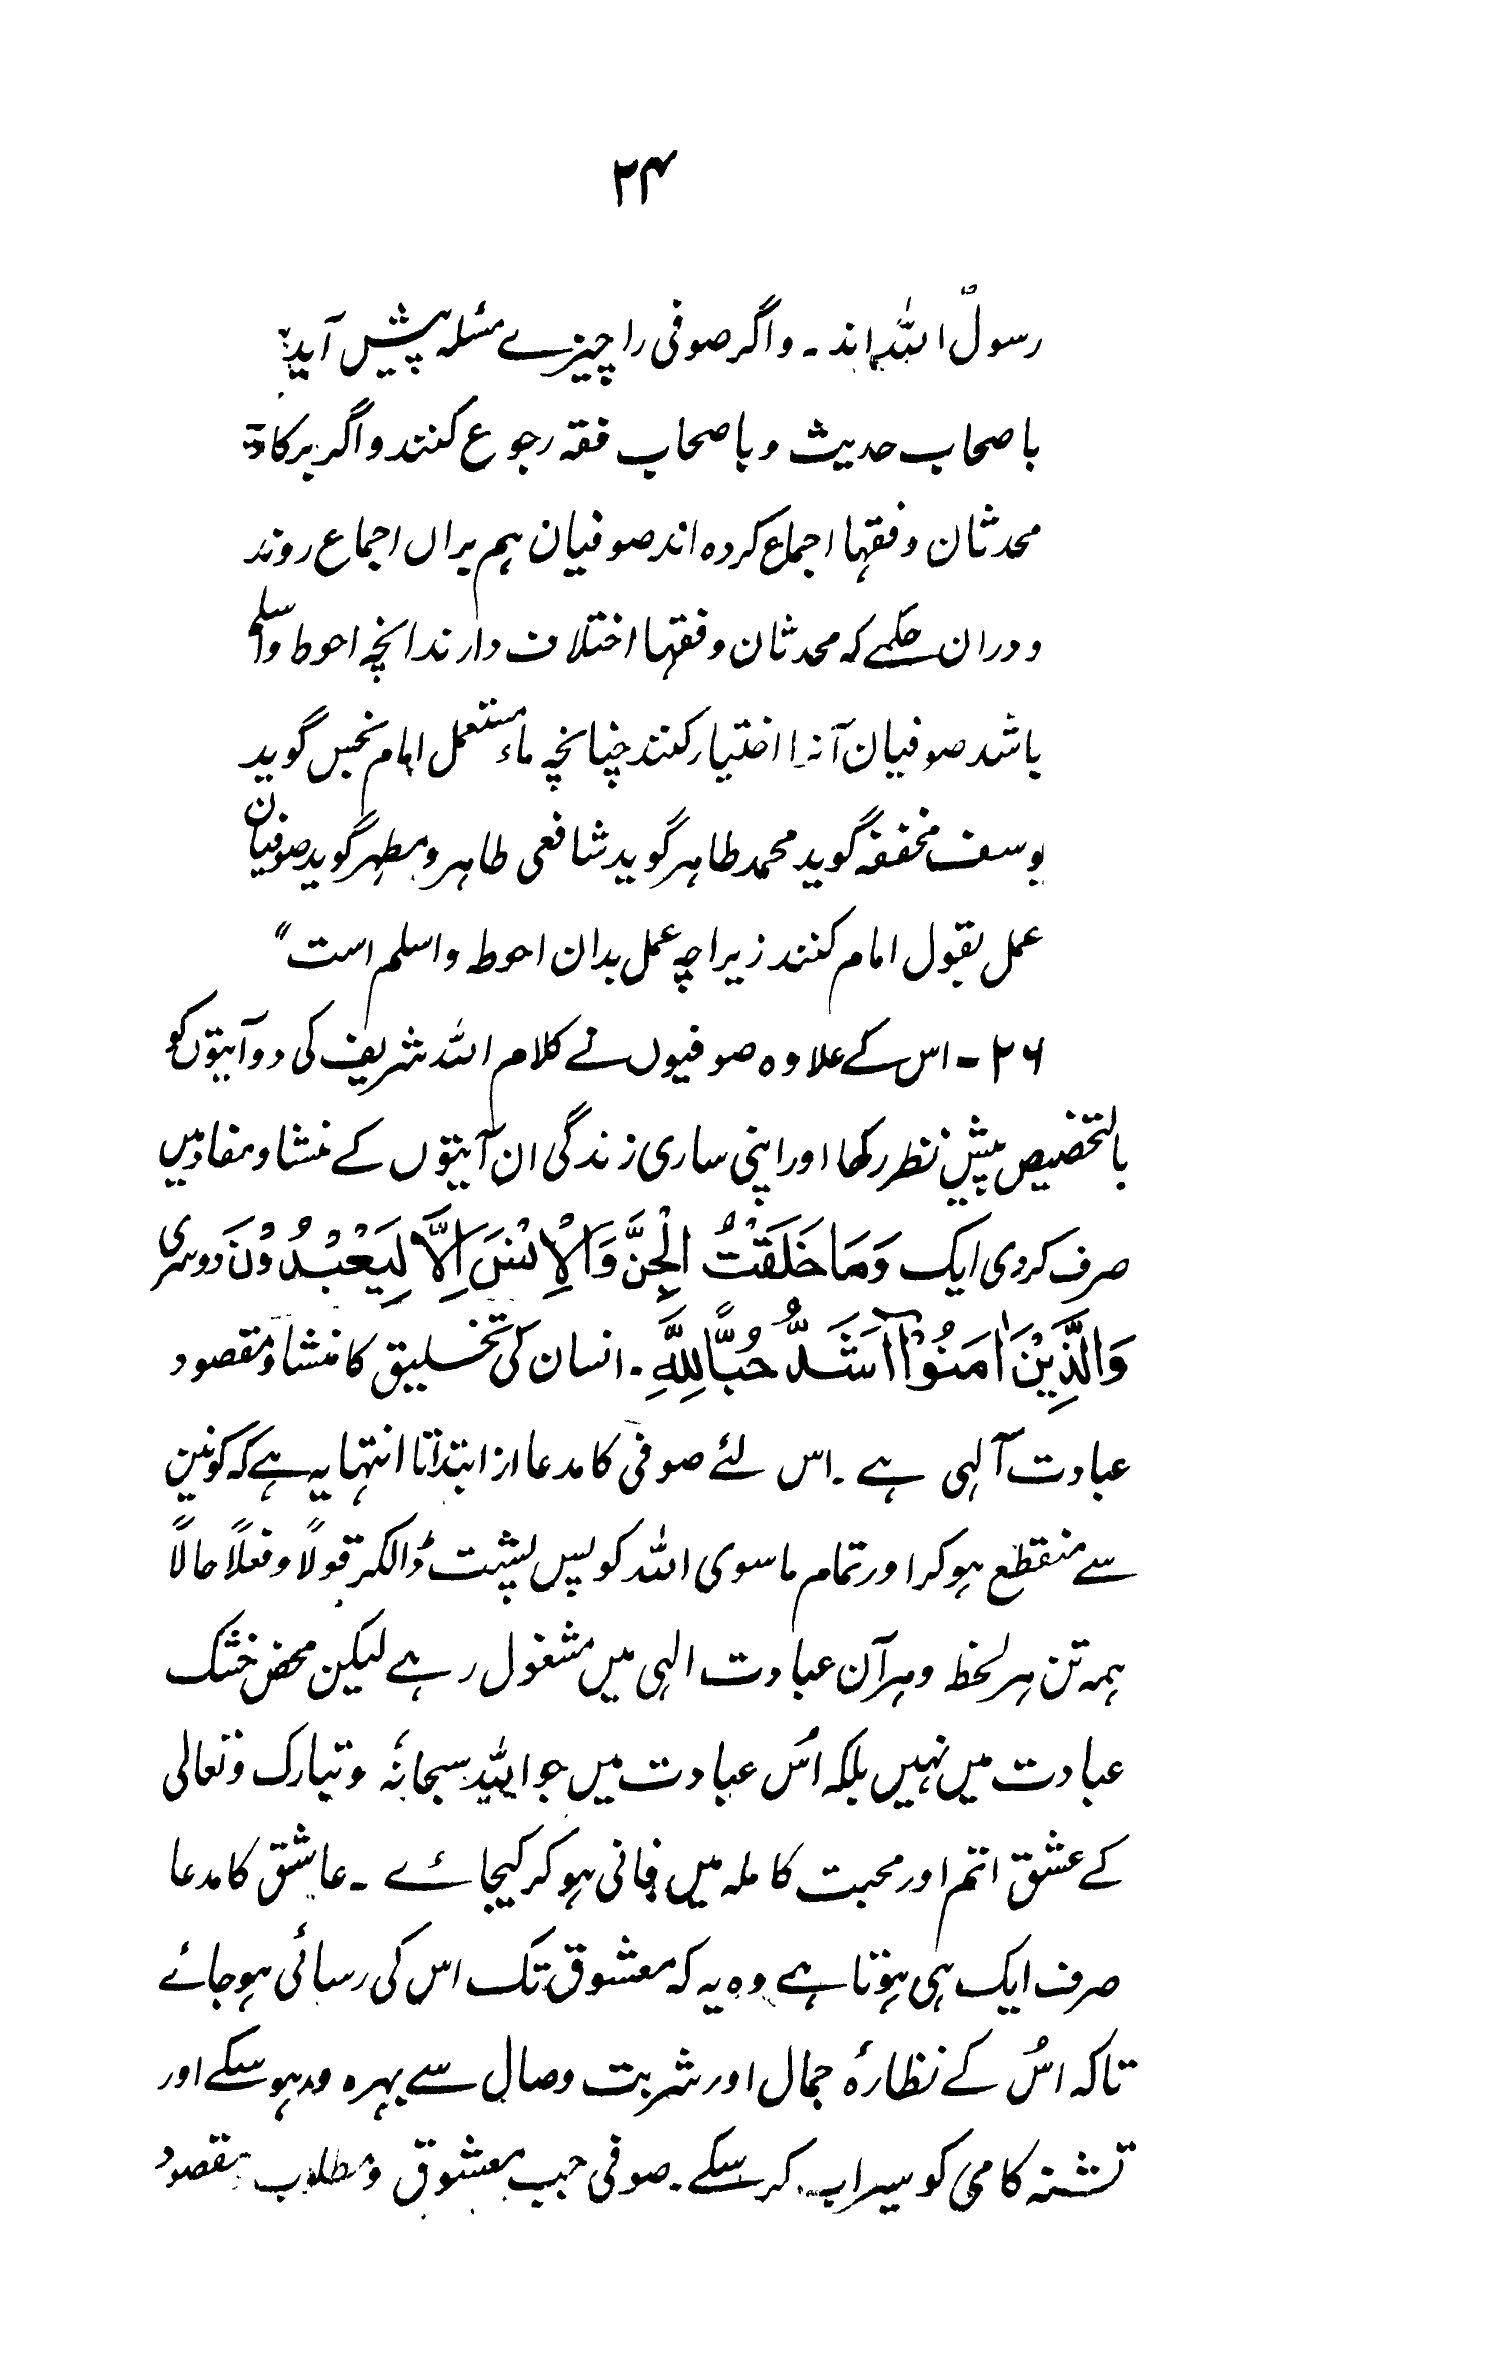 ۲۴
رسولؐ اللہ اند ۔ و اگر صوفی را چیزے مسٔلہ پیش آید
باصحاب حدیث و باصحاب فقہ رجوع کنند و اگر برکارے
محدثان و فقہا اجماع کردہ اند صوفیان ہم براں اجماع روند
و دران حکمے کہ محدثان و فقہا اختلاف دارند انچہ احوط و اسلم
باشد صوفیان آنرا اختیار کنند چنانچہ ماء مستعمل امام نجس گوید
یوسف مخففہ گوید محمد طاہر گوید شافعی طاہر و مطہر گوید صوفیان
عمل بقول امام کنند زیراچہ عمل بدان احوط و اسلم است“
۲۶ ۔ اس کے علاوہ صوفیوں نے کلام اللہ شریف کی دو آیتوں کو
بالتخصیص پیش نظر رکھا اور اپنی ساری زندگی ان آیتوں کے منشا و مفاد میں
صرف کردی ایک وَمَا خَلَقْتُ الْجِنَّ وَالْاِنْسَ اِلَّا لِیَعْبُدُوْنَ دوسری
وَالَّذِیْنَ اٰمَنُوْۤا اَشَدُّ حُبًّا لِلّٰهِ ۔ انسان کی تخلیق کا منشا و مقصود
عبادت آلہی ہے ۔ اس لئے صوفی کا مدعا از ابتدا تا انتہا یہ ہے کہ کونین
سے منقطع ہوکر اور تمام ماسوی اللہ کو پس پشت ڈالکر قولاً و فعلاً حالاً
ہمہ تن ہر لحظ و ہر آن عبادت الہی میں مشغول رہے لیکن محض خشک
عبادت میں نہیں بلکہ اُس عبادت میں جو اللہ سبحانہٗ و تبارک و تعالی
کے عشق اتم اور محبت کاملہ میں فانی ہوکر کیجائے ۔ عاشق کا مدعا
صرف ایک ہی ہوتا ہے وہ یہ کہ معشوق تک اس کی رسائی ہوجائے
تاکہ اُس کے نظارۂ جمال اور شربت وصال سے بہرہ ور ہوسکے اور
تشنہ کامی کو سیراب کرسکے ۔ صوفی جب معشوق و مطلوب مقصود